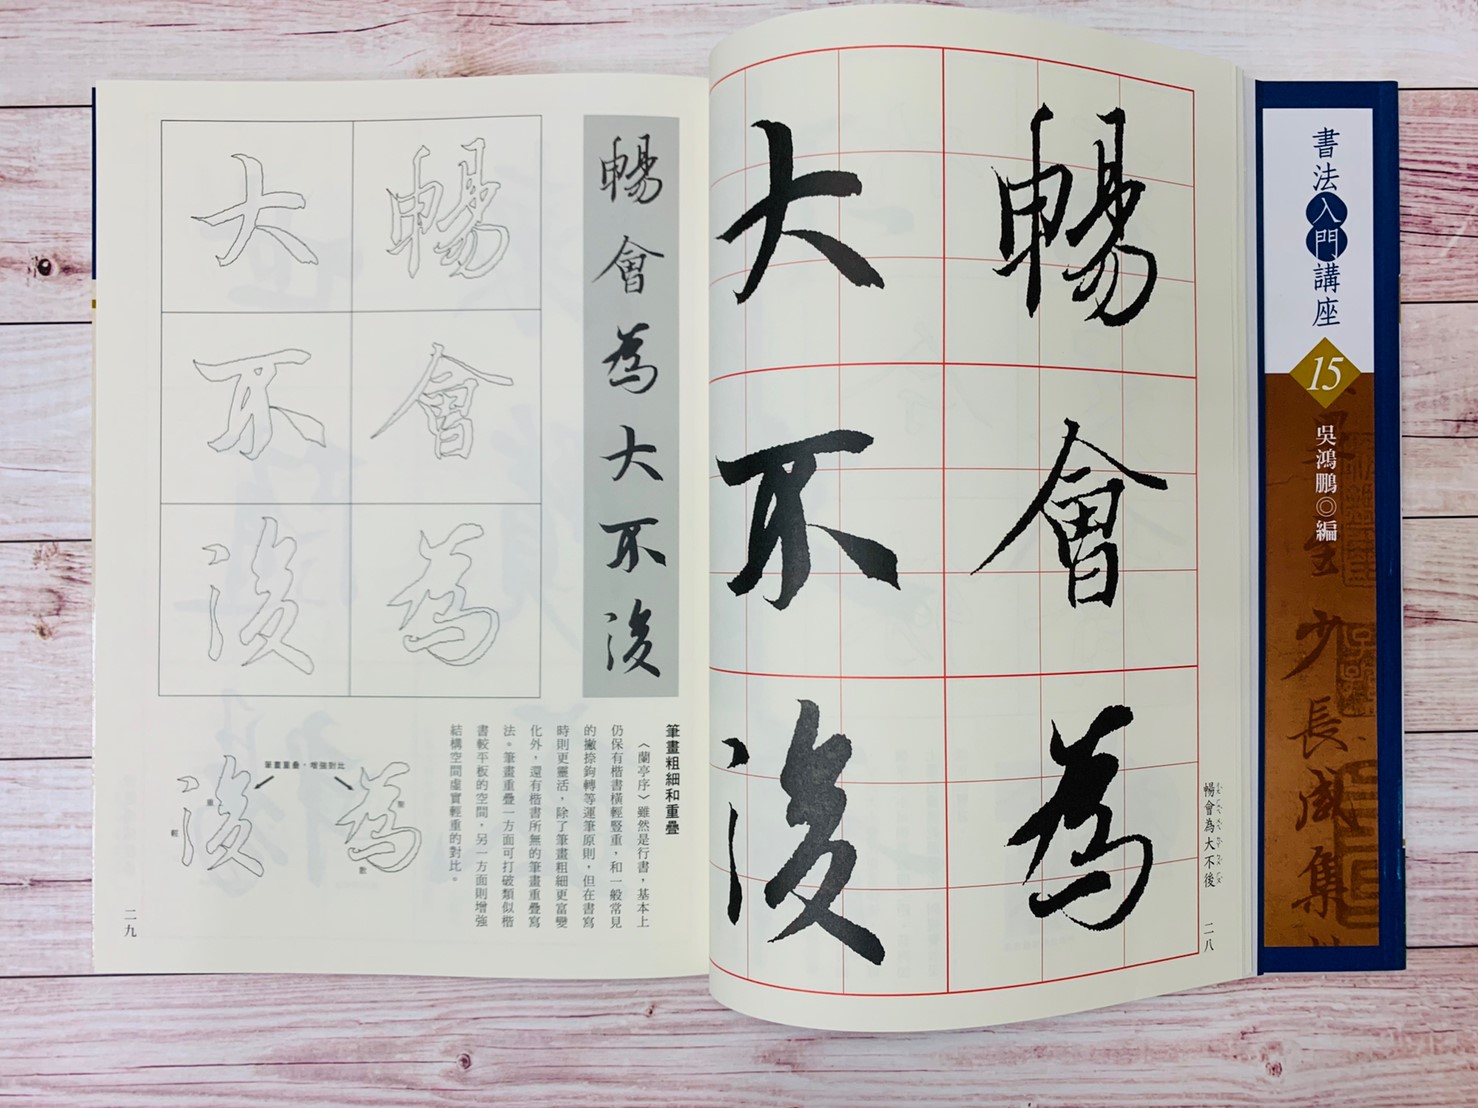 書法入門講座
15
吳鴻鵬◎編
少長咸集
暢會為
大不後
暢會為大不後
二八
暢會為大不後
暢會為
大不後
筆畫粗細和重疊
〈蘭亭序〉雖然是行書，基本上
仍保有楷書橫輕豎重，和一般常見
的撇捺鉤轉等運筆原則，但在書寫
時則更靈活，除了筆畫粗細更富變
化外，還有楷書所無的筆畫重疊寫
法。筆畫重疊一方面可打破類似楷
書較平板的空間，另一方面則增強
結構空間虛實輕重的對比。
筆畫重疊，增強對比
為
後
輕
二九